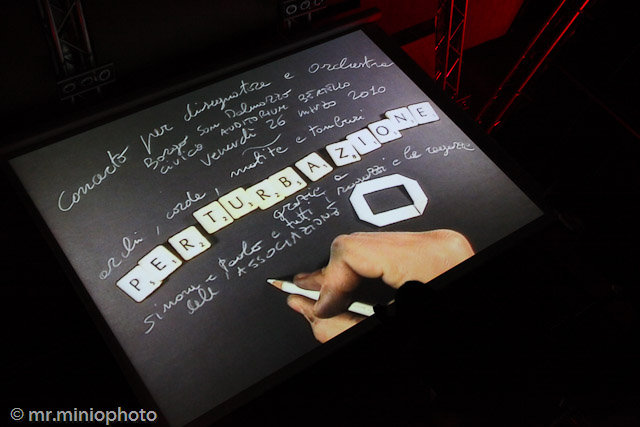 Concerto per disegnatore e orchestra
Borgo San Dalmazzo
civico AUDITORIUM BERTELLO
Venerdì 26 marzo 2010
archi, corde, matite e tamburi
PERTURBAZIONE
grazie a
Simone e Paolo e tutti i ragazzi e le ragazze
dell'ASSOCIAZIONE
© mr.miniophoto